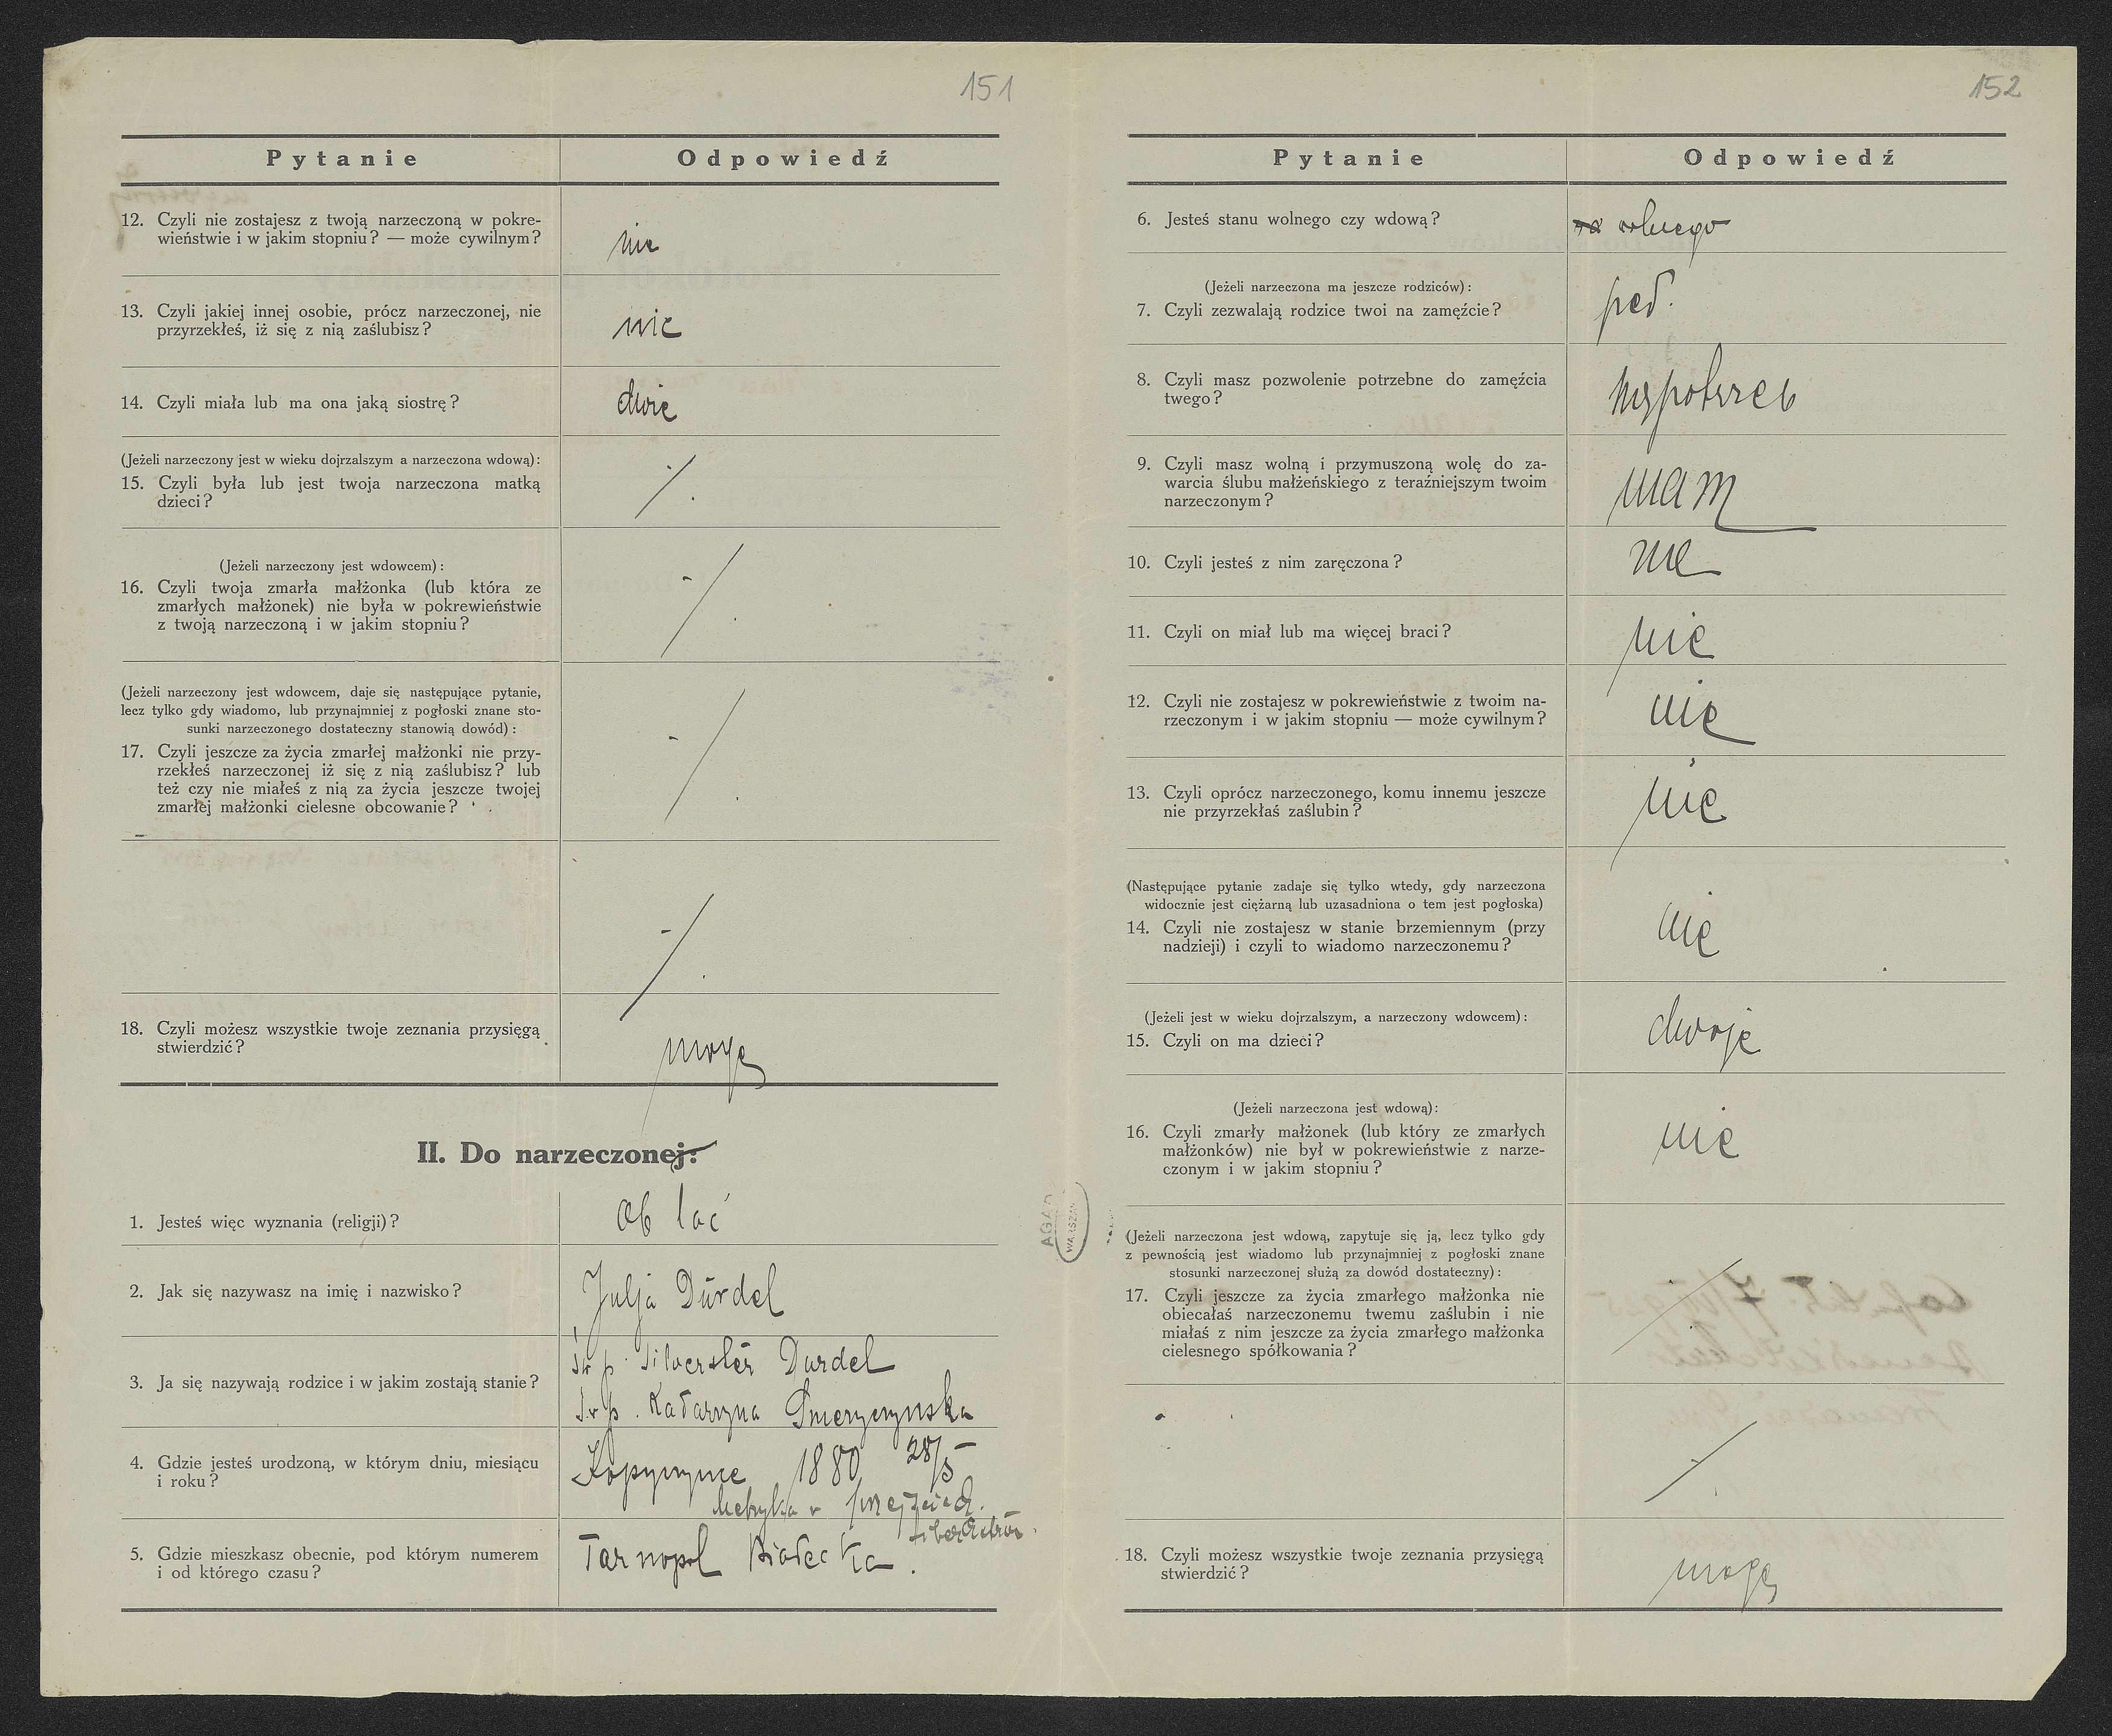 151
Pytanie
Odpowiedź
12. Czyli nie zostajesz z twoją narzeczoną w pokre-
wieństwie i w jakim stopniu? — może cywilnym?
nie
13. Czyli jakiej innej osobie, prócz narzeczonej, nie
przyrzekłeś, iż się z nią zaślubisz?
nie
14. Czyli miała lub ma ona jaką siostrę?
dwie
(Jeżeli narzeczony jest w wieku dojrzalszym a narzeczona wdową):
15. Czyli była lub jest twoja narzeczona matką
dzieci?
(Jeżeli narzeczony jest wdowcem):
16. Czyli twoja zmarła małżonka (lub która ze
zmarłych małżonek) nie była w pokrewieństwie
z twoją narzeczoną i w jakim stopniu?
(Jeżeli narzeczony jest wdowcem, daje się następujące pytanie,
lecz tylko gdy wiadomo, lub przynajmniej z pogłoski znane sto-
sunki narzeczonego dostateczny stanowią dowód):
17. Czyli jeszcze za życia zmarłej małżonki nie przy-
rzekłeś narzeczonej iż się z nią zaślubisz? lub
też czy nie miałeś z nią za życia jeszcze twojej
zmarłej małżonki cielesne obcowanie?
18. Czyli możesz wszystkie twoje zeznania przysięgą
stwierdzić?
mogę
II. Do narzeczonej:
1. Jesteś więc wyznania (religji)?
ob łać
2. Jak się nazywasz na imię i nazwisko?
Julja Dürdel
3. Ja się nazywają rodzice i w jakim zostają stanie?
św p. Silvester Durdel
św p. Katarzyna
4. Gdzie jesteś urodzoną, w którym dniu, miesiącu
i roku?
Kopyczynce 1880 28/5
Metryka w
5. Gdzie mieszkasz obecnie, pod którym numerem
i od którego czasu?
Tarnopol
AGAD
WARSZAW
152
Pytanie
Odpowiedź
6. Jesteś stanu wolnego czy wdową?
wolnego
(Jeżeli narzeczona ma jeszcze rodziców):
7. Czyli zezwalają rodzice twoi na zamężcie?
8. Czyli masz pozwolenie potrzebne do zamęźcia
twego?
9. Czyli masz wolną i przymuszoną wolę do za-
warcia ślubu małżeńskiego z teraźniejszym twoim
narzeczonym?
mam
10. Czyli jesteś z nim zaręczona?
nie
11. Czyli on miał lub ma więcej braci?
nie
12. Czyli nie zostajesz w pokrewieństwie z twoim na-
rzeczonym i w jakim stopniu — może cywilnym?
nie
13. Czyli oprócz narzeczonego, komu innemu jeszcze
nie przyrzekłaś zaślubin?
nie
(Następujące pytanie zadaje się tylko wtedy, gdy narzeczona
widocznie jest ciężarną lub uzasadniona o tem jest pogłoska)
14. Czyli nie zostajesz w stanie brzemiennym (przy
nadzieji) i czyli to wiadomo narzeczonemu?
nie
(Jeżeli jest w wieku dojrzalszym, a narzeczony wdowcem):
15. Czyli on ma dzieci?
dwoje
(Jeżeli narzeczona jest wdową):
16. Czyli zmarły małżonek (lub który ze zmarłych
małżonków) nie był w pokrewieństwie z narze-
czonym i w jakim stopniu?
nie
(Jeżeli narzeczona jest wdową, zapytuje się ją, lecz tylko gdy
z pewnością jest wiadomo lub przynajmniej z pogłoski znane
stosunki narzeczonej służą za dowód dostateczny):
17. Czyli jeszcze za życia zmarłego małżonka nie
obiecałaś narzeczonemu twemu zaślubin i nie
miałaś z nim jeszcze za życia zmarłego małżonka
cielesnego spółkowania?
18. Czyli możesz wszystkie twoje zeznania przysięgą
stwierdzić?
mogę